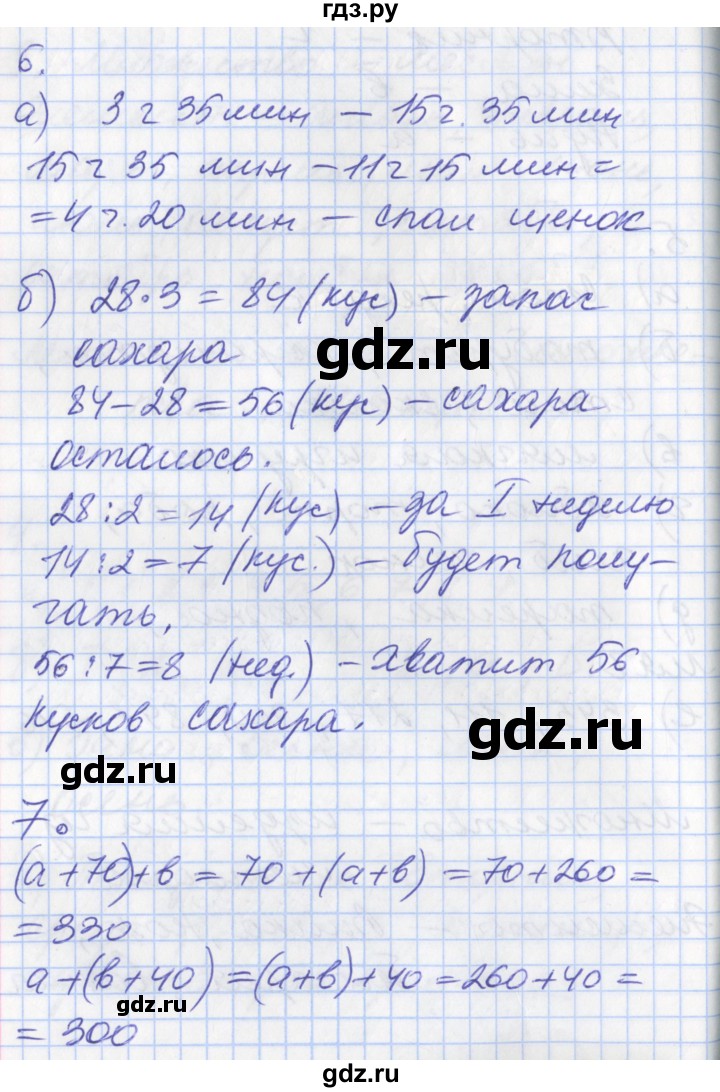 гдз.ру
6.
а) 3 ч 35 мин – 15 ч. 35 мин
15 ч 35 мин – 11 ч 15 мин =
= 4 ч. 20 мин – спал щенок
б) 28·3 = 84 (кус) – запас
сахара
gdz.ru
84–28 = 56 (кус) – сахара
осталось.
28:2 = 14 (кус) – за I неделю
14:2 = 7 (кус.) – будет полу-
чать,
56:7=8 (нед.) – хватит 56
кусков сахара.
gdz.ru
gdz.ru
7.
(а+70)+в = 70+(а+в) = 70+260 =
= 330
а+(в+40) = (а+в)+40 = 260+40 =
gdz.ru
= 300
gdz.ru